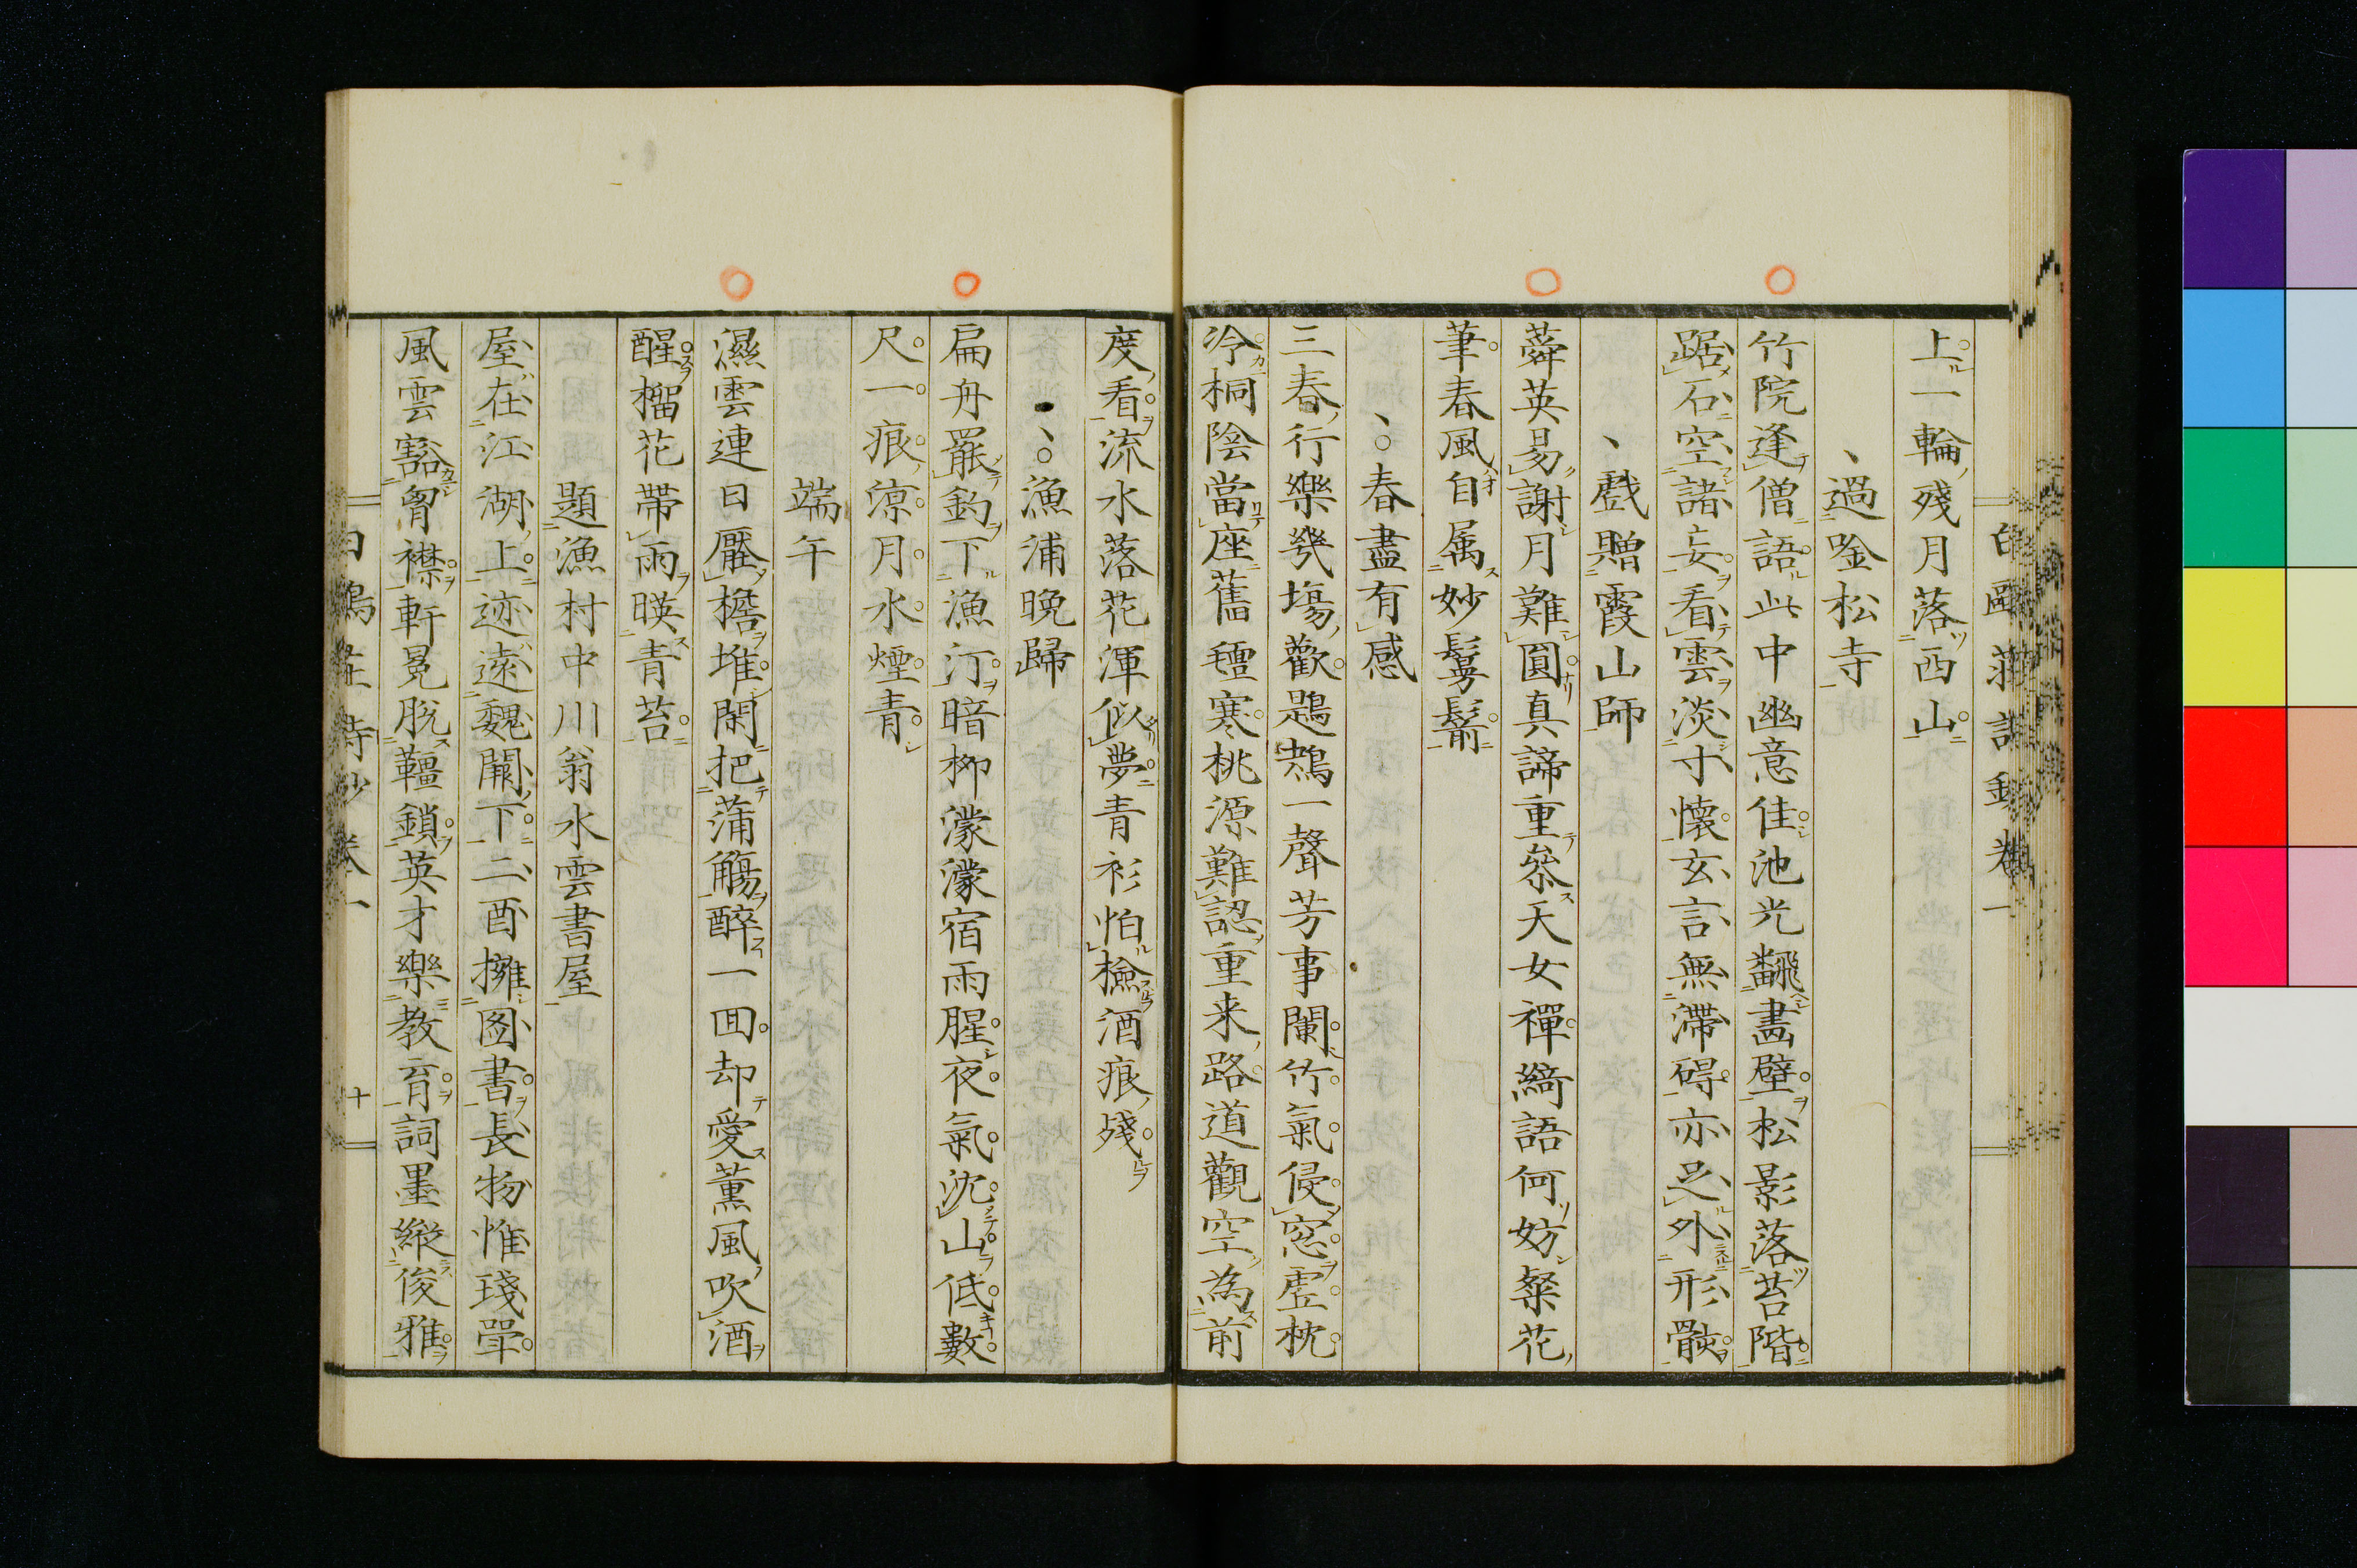 白鷗莊詩鈔卷一
上一輪殘月落西山
過唫松寺
竹院逢僧語此中幽意佳池光飜畫壁松影落苔階
踞石空諸妄看雲淡寸懷玄言無滯碍亦足外形骸
戲贈霞山師
蕣英易謝月難圓真諦重參天女禪綺語何妨粲花
筆春風自属妙鬘鬋
春盡有感
三春行樂幾塲歡鶗鴂一聲芳事闌竹氣侵窓虚枕
冷桐陰當座舊氊寒桃源難認重来路道觀空為前
度看流水落花渾似夢青衫怕檢酒痕殘
漁浦晚歸
扁舟罷釣下漁汀暗栁濛濛宿雨腥夜氣沈山低數
尺一痕凉月水煙青
端午
濕雲連日壓檐堆閑把蒲觴醉一囬却愛薫風吹酒
醒榴花帶雨暎青苔
題漁村中川翁水雲書屋
屋在江湖上迹遠魏闕下二酉擁圖書長物惟琖斝
風雲豁胷襟軒冕脱韁鎖英才樂教育詞墨縱俊雅
白鷗莊詩鈔卷一 十